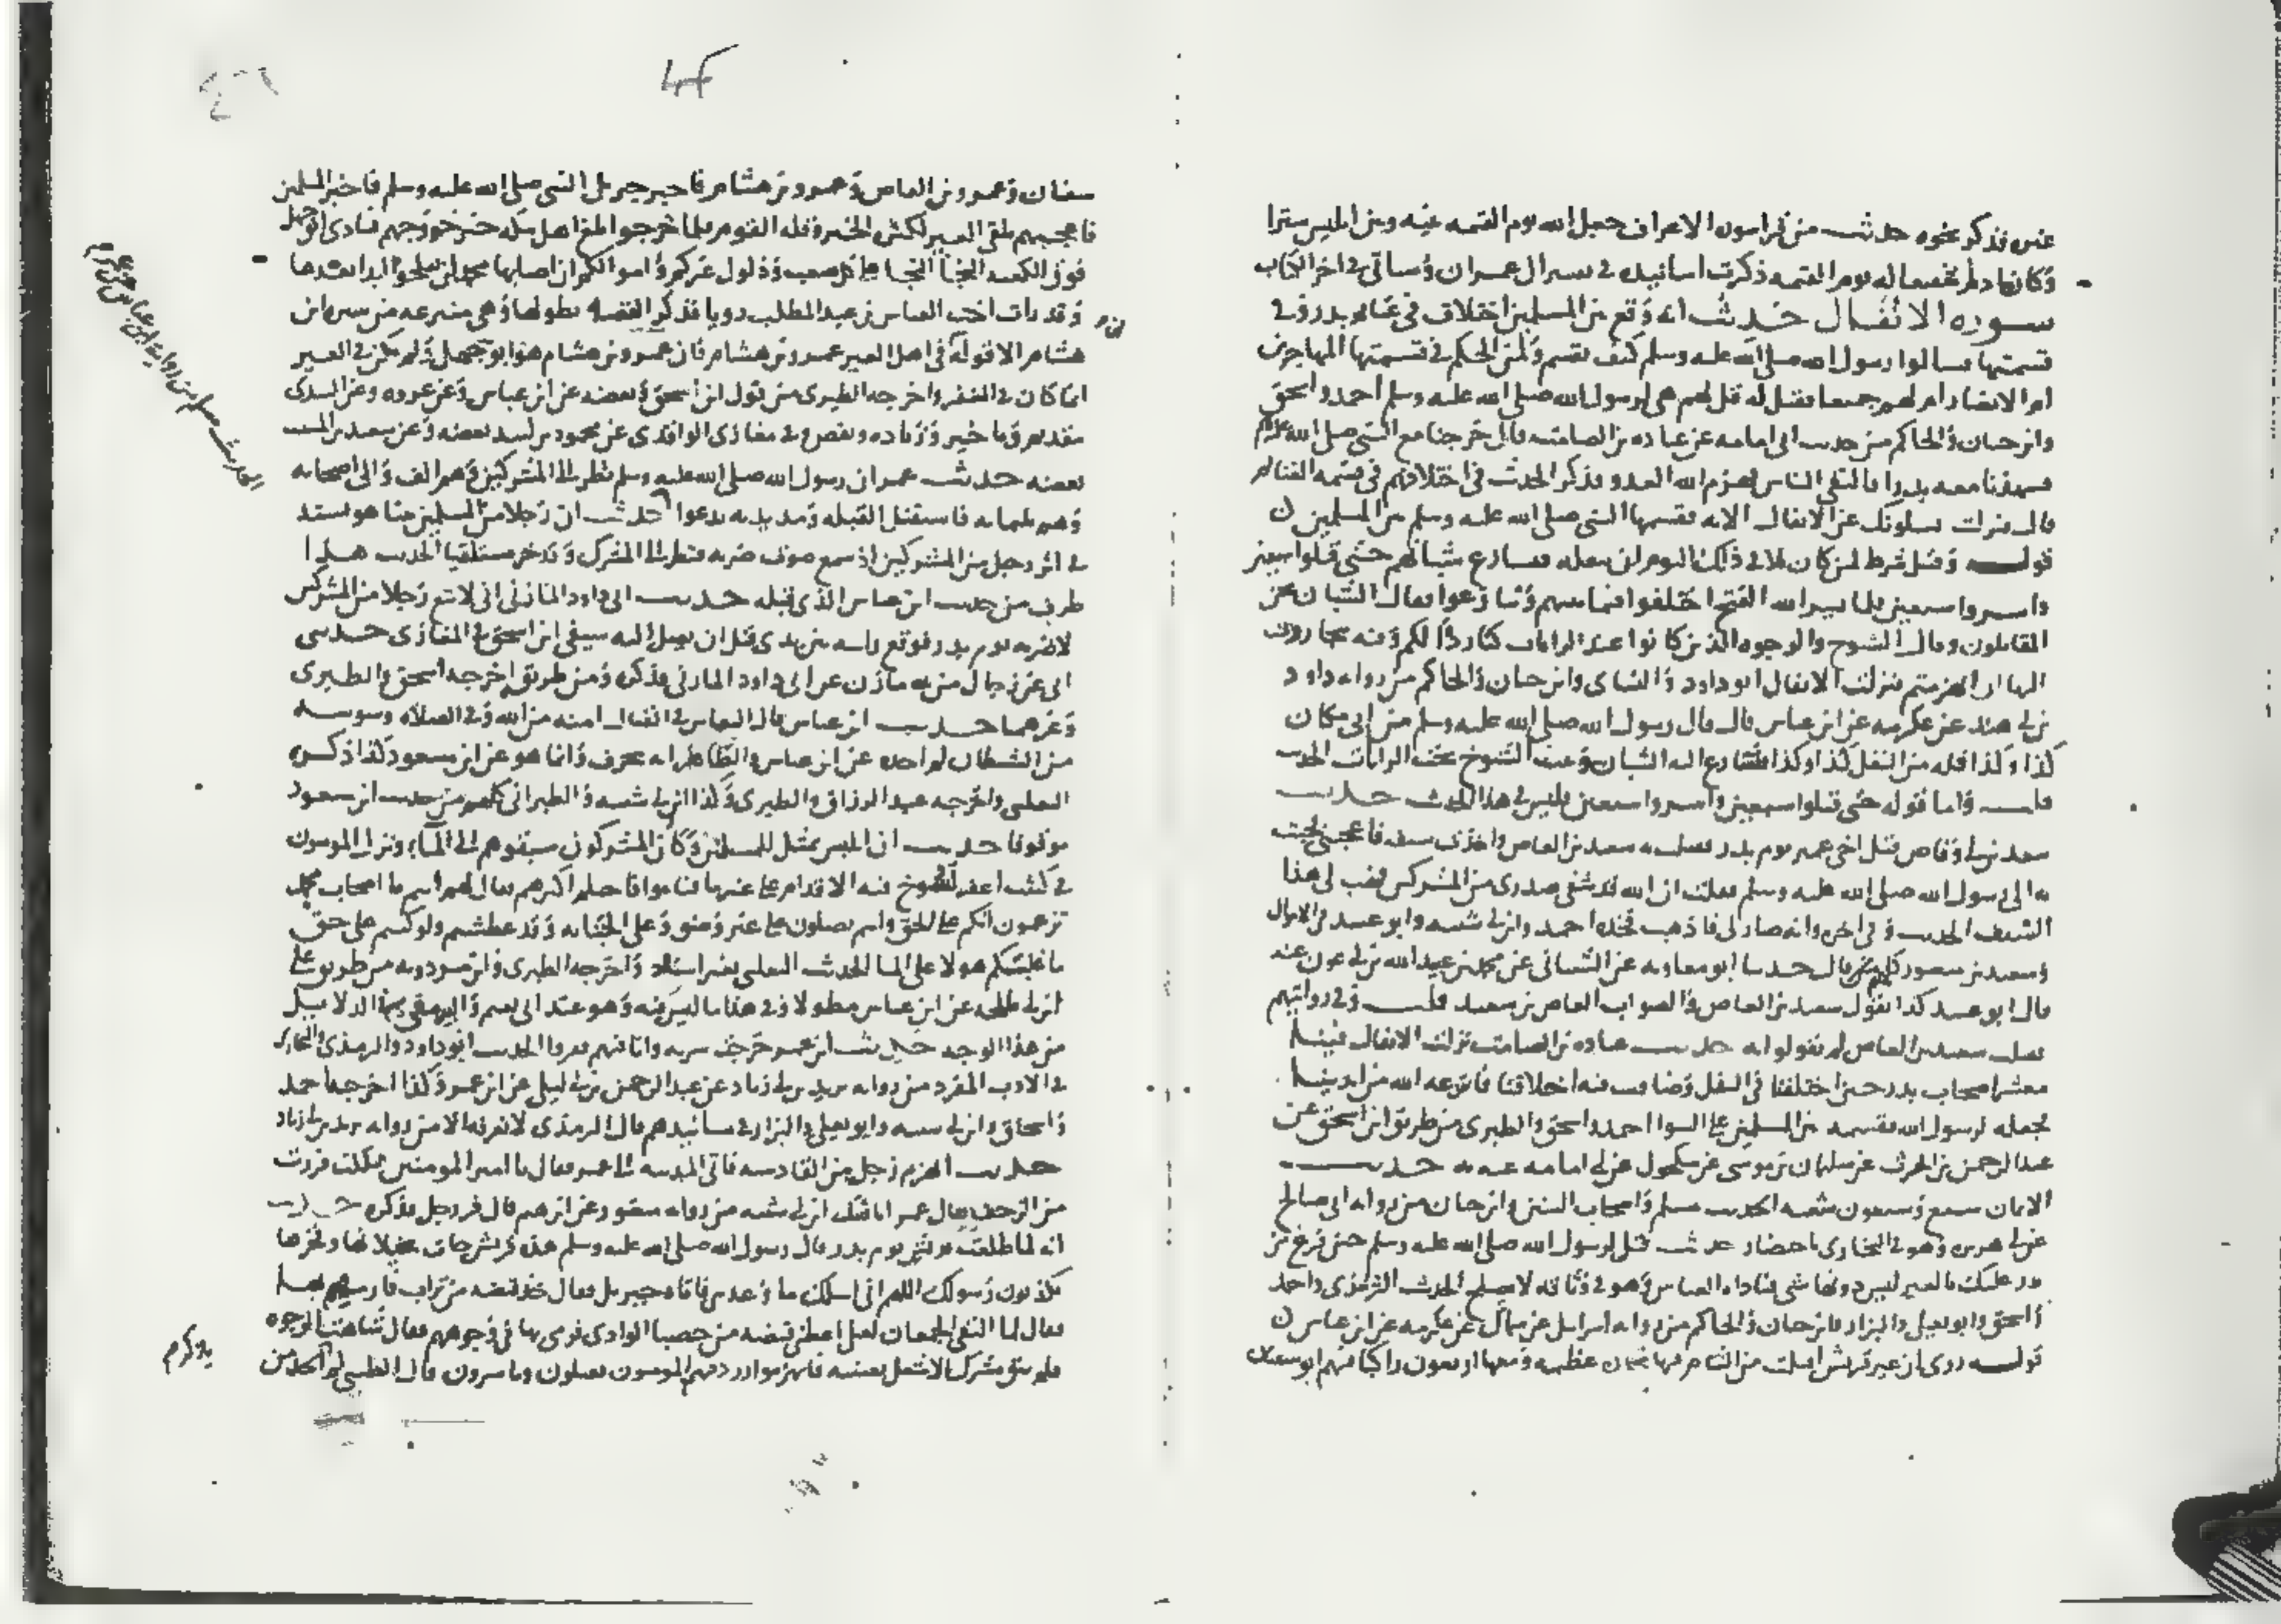 عنس فذكر نحوه حديث من قرأ سورة الاعراف جعل الله يوم القيمه بينه وبين ابليس سترا
وكان ادم شفيعا له يوم القيمه ذكرت اسانيده في تفسير ال عمران وسياتي في اخر الكتاب
سورة الانفال حديث انه وقع بين المسلمين اختلاف في غنايم بدر وفي
قسمتها فسالوا رسول الله صلى الله عليه وسلم كيف نقسم ولمن الحكم في قسمتها المهاجرين
ام الانصار ام لهم جميعا فقيل له قل لهم هي لرسول الله صلى الله عليه وسلم احمد واسحق
وابن حبان والحاكم من حديث ابي امامه عن عباده بن الصامت قال خرجنا مع النبي صلى الله عليه وسلم
فشهدنا معه بدرا فالتقى الناس فهزم الله العدو فذكر الحديث في اختلافهم في قسمه الغنايم
قال فنزلت يسلونك عن الانفال الايه فقسمها النبي صلى الله عليه وسلم بين المسلمين
قوله وقيل شرط لمن كان له بلا في ذلك اليوم ان ينفله فتسارع شبانهم حتى قتلوا سبعين
واسروا سبعين فلما يسر الله الفتح اختلفوا فيما بينهم وتنازعوا فقال الشبان نحن
المقاتلون وقال الشيوخ والوجوه الذين كانوا عند الرايات كنا ردا لكم وفئه تنحازون
اليها ان انهزمتم فنزلت الانفال ابو داود والنساي وابن حبان والحاكم من روايه داود
بن ابي هند عن عكرمه عن ابن عباس قال قال رسول الله صلى الله عليه وسلم من اتى مكان
كذا وكذا فله من النفل كذا وكذا فتسارع اليه الشبان وثبت الشيوخ تحت الرايات الحديث
قلت واما قوله حتى قتلوا سبعين واسروا سبعين فليس في هذا الحديث حديث
سعد بن ابي وقاص قتل اخي عمير يوم بدر فقتلت به سعيد بن العاص واخذت سيفه فاعجبني فجيت
به الى رسول الله صلى الله عليه وسلم فقلت ان الله قد شفى صدري من المشركين فهب لي هذا
السيف الحديث وفي اخره وانه صار لي فاذهب فخذه احمد وابن ابي شيبه وابو عبيد في الاموال
وسعيد بن منصور كلهم قال حدثنا ابو معاويه عن الشيباني عن محمد بن عبيد الله بن ابي عون عنه
قال ابو عبيد كذا يقول سعيد بن العاص والصواب العاص بن سعيد قلت وفي روايتهم
قتلت سعيد بن العاص لم يقولوا به حديث عباده بن الصامت نزلت الانفال فينا
معشر اصحاب بدر حين اختلفنا في النفل وساءت فيه اخلاقنا فانتزعه الله من ايدينا
فجعله لرسول الله فقسمه بين المسلمين على السوا احمد واسحق والطبري من طريق ابن اسحق عن
عبد الرحمن بن الحرث عن سليمان بن موسى عن مكحول عن ابي امامه عنه به حديث
الايمان بضع وسبعون شعبه الحديث مسلم واصحاب السنن وابن حبان من روايه ابي صالح
عن ابي هريره وهو في البخاري باختصار حديث قيل لرسول الله صلى الله عليه وسلم حين فرغ من
بدر عليك بالعير ليس دونها شي فناداه العباس وهو في وثاقه لا يصلح الحديث الترمذي واحمد
واسحق وابو يعلى والبزار وابن حبان والحاكم من روايه اسرايل عن سماك عن عكرمه عن ابن عباس
قوله روي ان عير قريش اقبلت من الشام فيها تجاره عظيمه ومعها اربعون راكبا منهم ابو سفيان
سفيان وعمرو بن العاص وعمرو بن هشام فاخبر جبريل النبي صلى الله عليه وسلم فاخبر المسلمين
فاعجبهم تلقي العير لكثره الخير وقله القوم فلما خرجوا بلغ اهل مكه خبر خروجهم فنادى ابو جهل
فوق الكعبه النجا النجا على كل صعب وذلول عيركم واموالكم ان اصابها محمد لن تفلحوا ابدا بعدها
وقد رات اخت العباس بن عبد المطلب رويا فذكر القصه بطولها وهي منتزعه من سيره ابن
هشام الا قوله في اهل العير عمرو بن هشام فان عمرو بن هشام هو ابو جهل ولم يكن في العير
انما كان في النفير واخرجه الطبري من قول ابن اسحق وبعضه عن ابن عباس وعن عروه وعن السدي
بتقديم وتاخير وزياده ونقص وفي مغازي الواقدي عن محمود بن لبيد بعضه وعن سعيد بن المسيب
بعضه حديث عمر ان رسول الله صلى الله عليه وسلم نظر الى المشركين وهم الف والى اصحابه
وهم ثلثمايه فاستقبل القبله ومد يديه يدعوا حديث ان رجلا من المسلمين بينا هو يشتد
في اثر رجل من المشركين اذ سمع صوت ضربه فنظر الى المشرك وقد خر مستلقيا الحديث هذا
طرف من حديث ابن عباس الذي قبله حديث ابي داود المازني اني لاتبع رجلا من المشركين
لاضربه يوم بدر فوقع راسه بين يدي قبل ان يصل اليه سيفي ابن اسحق في المغازي حدثني
ابي عن رجال من بني مازن عن ابي داود المازني فذكره ومن طريقه اخرجه اسحق والطبري
وغيرهما حديث ابن عباس قال النعاس في القتال امنه من الله وفي الصلاه وسوسه
من الشيطان لم اجده عن ابن عباس والظاهر انه تحرف وانما هو عن ابن مسعود كذا ذكره
الثعلبي واخرجه عبد الرزاق والطبري وكذا ابن ابي شيبه والطبراني كلهم من حديث ابن مسعود
موقوفا حديث ان ابليس تمثل للمسلمين وكان المشركون سبقوهم الى الماء ونزل المومنون
في كثيب اعفر تسوخ فيه الاقدام على غير ما فناموا فاحتلم اكثرهم فقال لهم انتم يا اصحاب محمد
تزعمون انكم على الحق وانتم تصلون على غير وضوء وعلى الجنابه وقد عطشتم ولو كنتم على حق
ما غلبكم هولا على الما الحديث الثعلبي بغير اسناد واخرجه الطبري وابن مردويه من طريق علي
ابن ابي طلحه عن ابن عباس مطولا وفي هذا ما ليس فيه وهو عند ابي نعيم والبيهقي في الدلايل
من هذا الوجه حديث ابن عمر خرجت سريه وانا فيهم ففروا الحديث ابو داود والترمذي والبخاري
في الادب المفرد من روايه يزيد بن ابي زياد عن عبد الرحمن بن ابي ليلى عن ابن عمر وكذا اخرجه احمد
واسحاق وابن ابي شيبه وابو يعلى والبزار في مسانيدهم قال الترمذي لا نعرفه الا من روايه يزيد بن ابي زياد
حديث انهزم رجل من القادسيه فاتى المدينه الى عمر فقال يا امير المومنين هلكت فررت
من الزحف فقال عمر انا فئتك ابن ابي شيبه من روايه منصور عن ابراهيم قال فر رجل فذكره حديث
انه لما طلعت قريش يوم بدر قال رسول الله صلى الله عليه وسلم هذه قريش جات بخيلائها وفخرها
يكذبون رسولك اللهم اني اسلك ما وعدتني فاتاه جبريل فقال خذ قبضه من تراب فارمهم بها
فقال لما التقى الجمعان لعلي اعطني قبضه من حصبا الوادي فرمى بها في وجوههم فقال شاهت الوجوه
فلم يبق مشرك الا شغل بعينيه فانهزموا وردفهم المومنون يقتلون وياسرون قال الطيبي لم